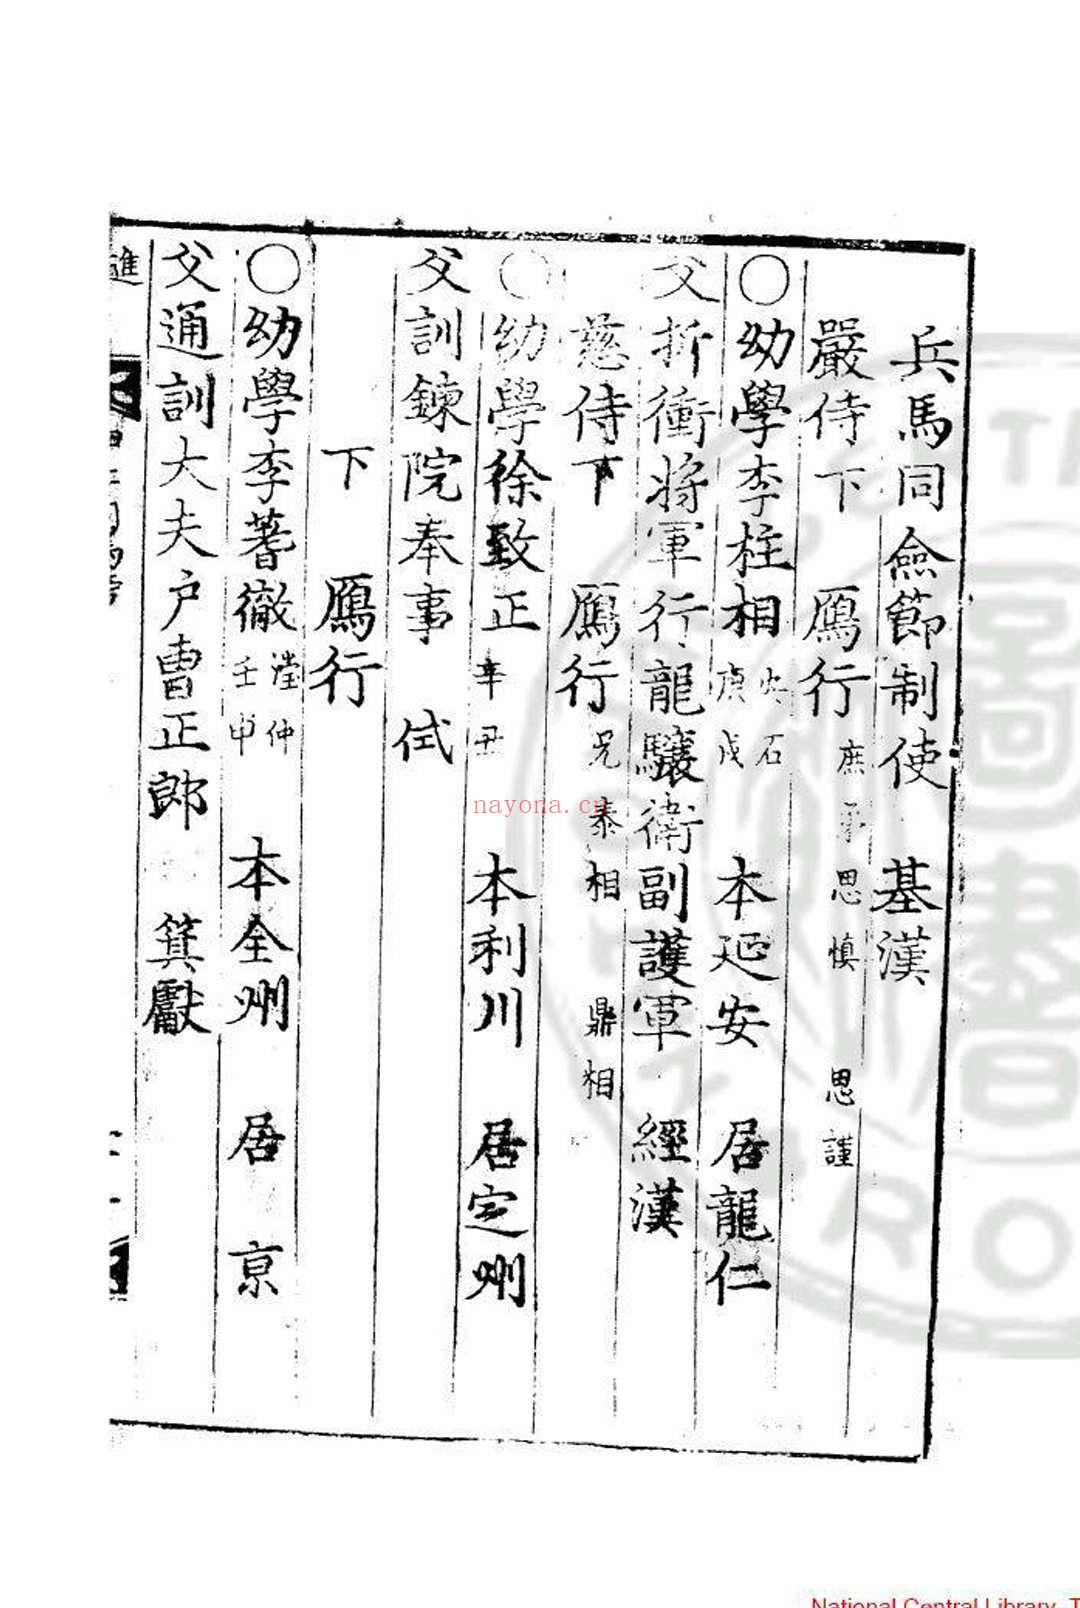 兵馬同僉節制使 基漢
嚴侍下 鴈行 庶 思慎 思謹
〇幼學李柱相 庚戌 石 本延安 居龍仁
父折衝將軍行龍驤衛副護軍 經漢
慈侍下 鴈行 兄泰相 鼎相
〇幼學徐致正 辛丑 本利川 居定州
父訓鍊院奉事 㑦
下 鴈行
〇幼學李蓍徹 瀅仲 壬申 本全州 居京
父通訓大夫戶曹正郎 箕獻
進
nayona.cn
National Central Library, T